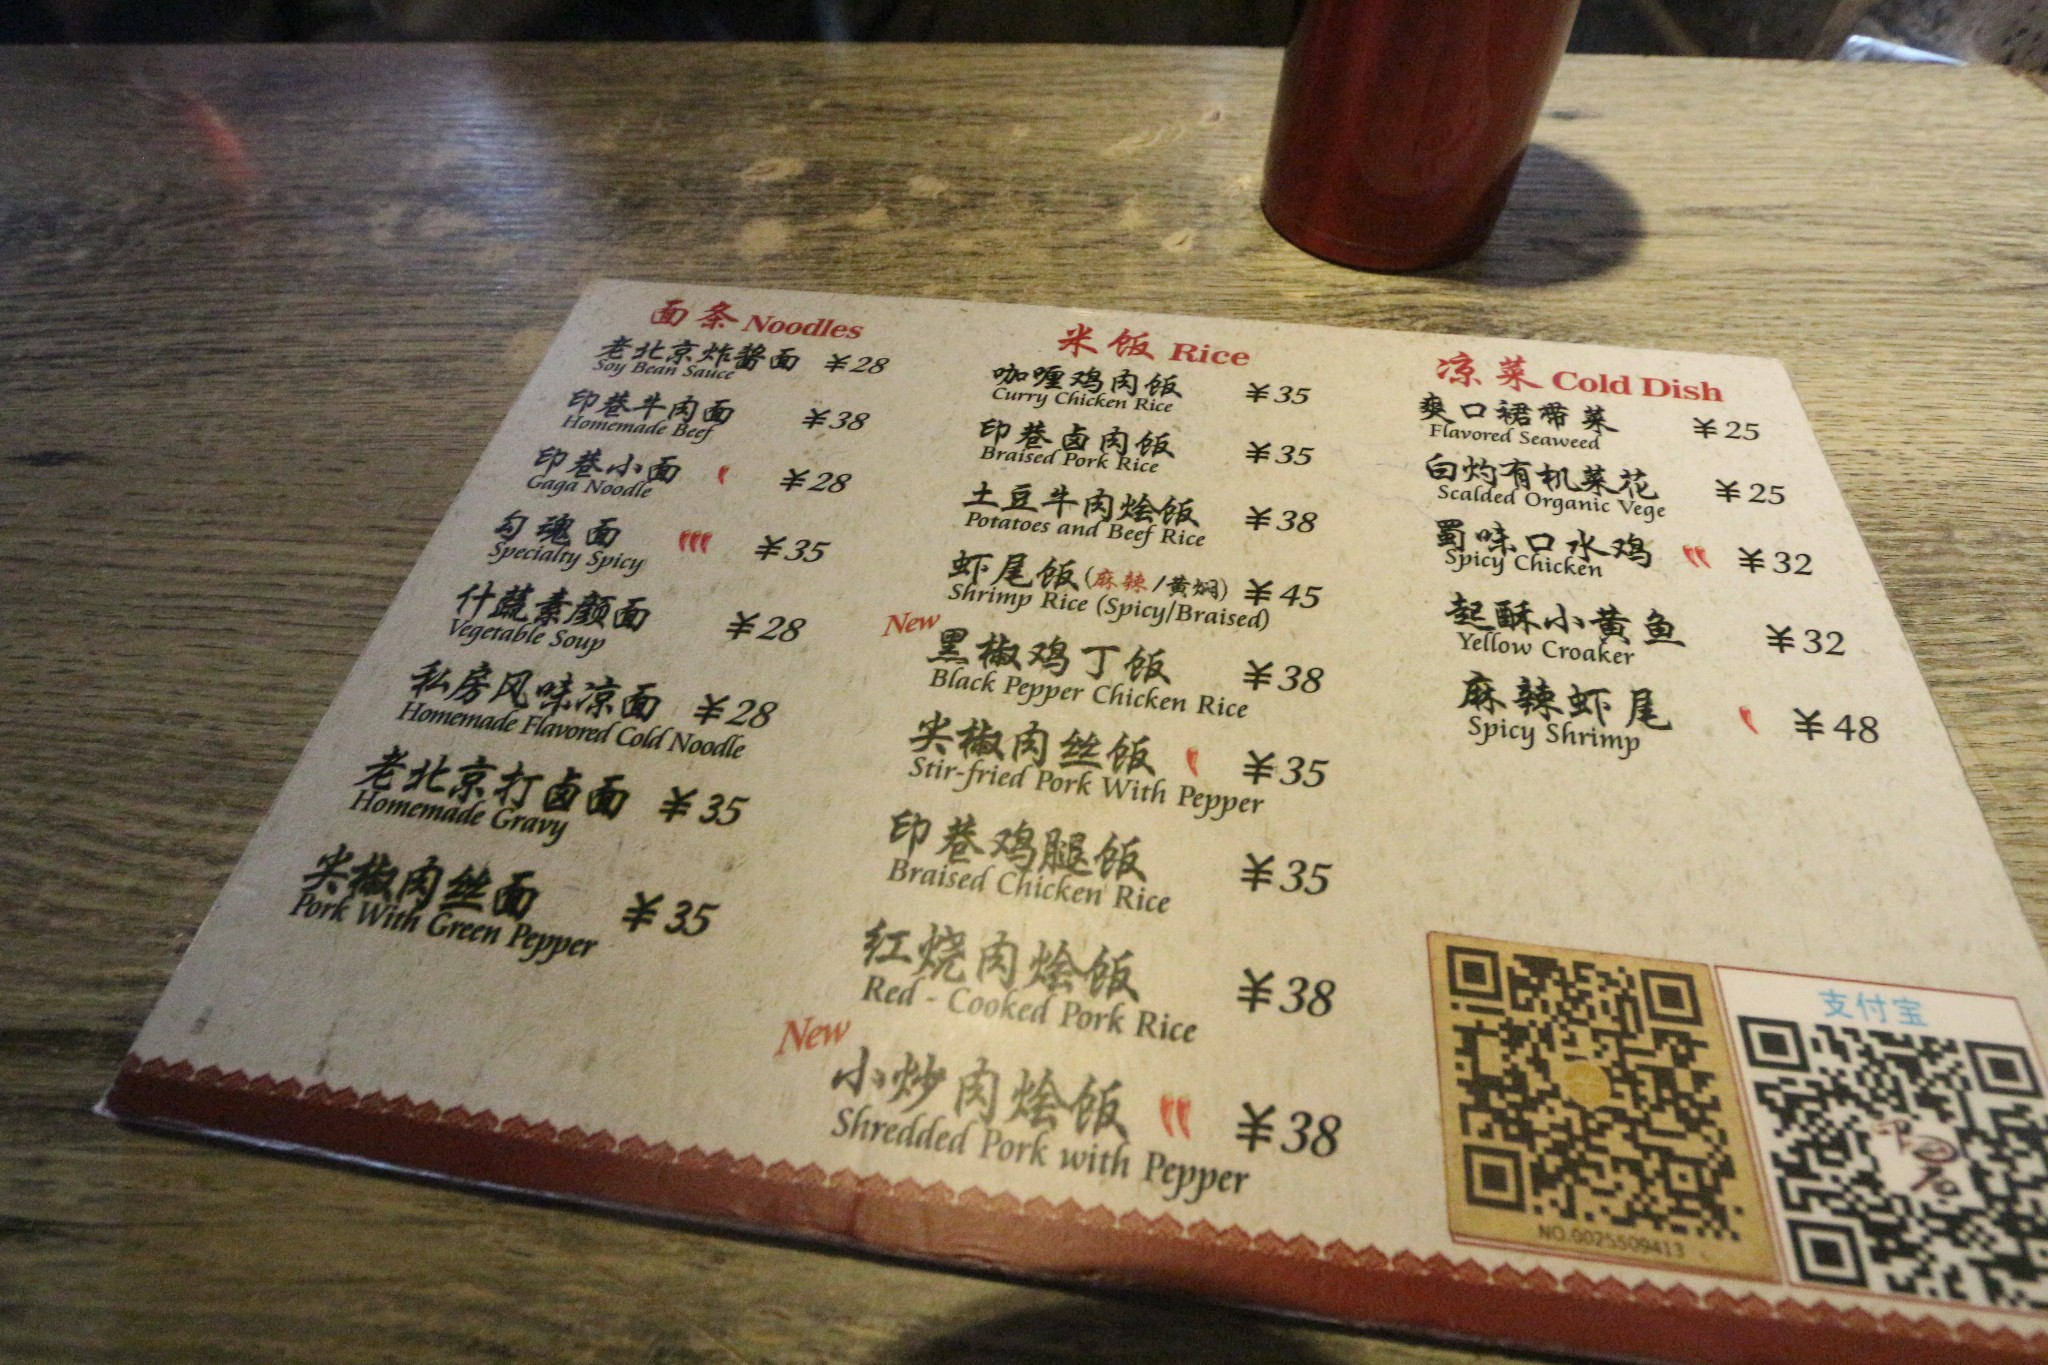 面条 Noodles
老北京炸酱面 ¥28
Soy Bean Sauce
印巷牛肉面 ¥38
Homemade Beef
印巷小面 ¥28
Gaga Noodle
勾魂面 ¥35
Specialty Spicy
什蔬素颜面 ¥28
Vegetable Soup
私房风味凉面 ¥28
Homemade Flavored Cold Noodle
老北京打卤面 ¥35
Homemade Gravy
尖椒肉丝面 ¥35
Pork With Green Pepper
米饭 Rice
咖喱鸡肉饭 ¥35
Curry Chicken Rice
印巷卤肉饭 ¥35
Braised Pork Rice
土豆牛肉烩饭 ¥38
Potatoes and Beef Rice
虾尾饭(麻辣/黄焖) ¥45
Shrimp Rice (Spicy/Braised)
New
黑椒鸡丁饭 ¥38
Black Pepper Chicken Rice
尖椒肉丝饭 ¥35
Stir-fried Pork With Pepper
印巷鸡腿饭 ¥35
Braised Chicken Rice
红烧肉烩饭 ¥38
Red - Cooked Pork Rice
New
小炒肉烩饭 ¥38
Shredded Pork with Pepper
凉菜 Cold Dish
爽口裙带菜 ¥25
Flavored Seaweed
白灼有机菜花 ¥25
Scalded Organic Vege
蜀味口水鸡 ¥32
Spicy Chicken
起酥小黄鱼 ¥32
Yellow Croaker
麻辣虾尾 ¥48
Spicy Shrimp
NO.0025509413
支付宝